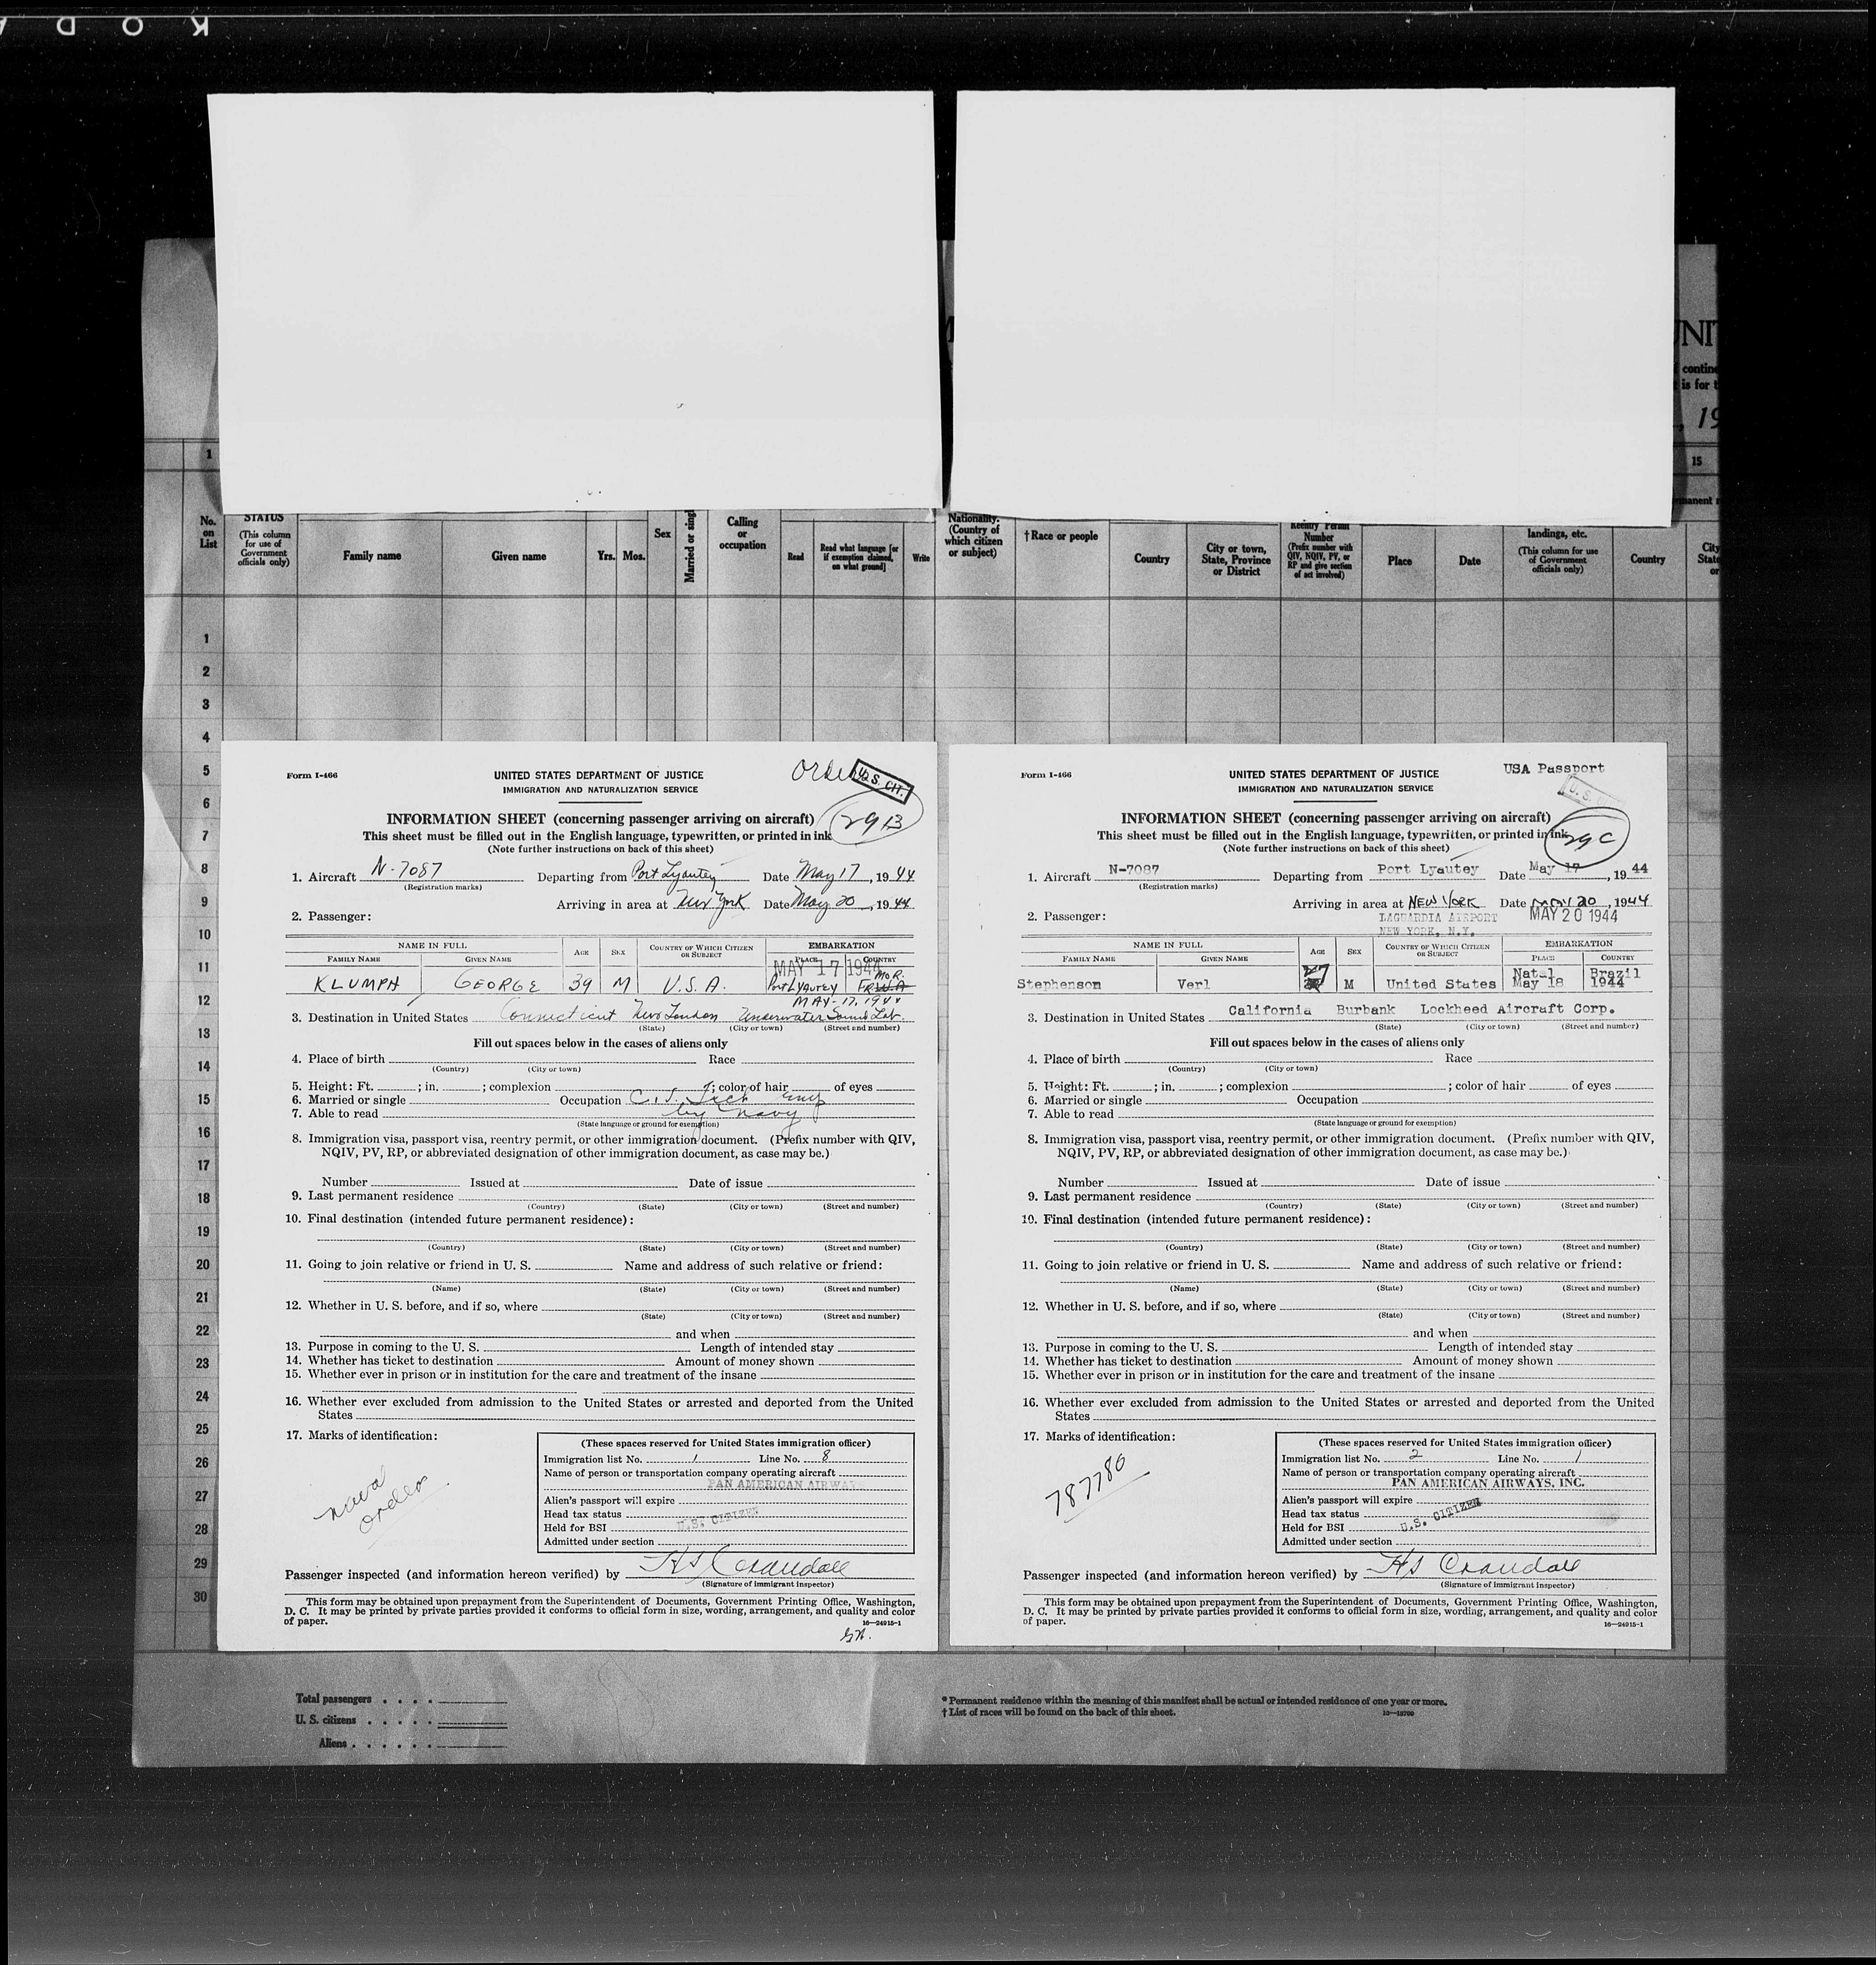 K O D A
UNIT
f contine
is for t
, 19
1
15
manent r
No.
on
List
STATUS
(This column
for use of
Government
officials only)
Family name
Given name
Yrs.
Mos.
Sex
Married or singl
Calling
or
occupation
Read
Read what language [or
if exemption claimed,
on what ground]
Write
Nationality.
(Country of
which citizen
or subject)
†Race or people
Country
City or town,
State, Province
or District
Reentry Permit
Number
(Prefix number with
QIV, NQIV, PV, or
RP and give section
of act involved)
Place
Date
landings, etc.
(This column for use
of Government
officials only)
Country
City
State
or
1
2
3
4
5
6
7
8
9
10
11
12
13
14
15
16
17
18
19
20
21
22
23
24
25
26
27
28
29
30
Form I-466
UNITED STATES DEPARTMENT OF JUSTICE
IMMIGRATION AND NATURALIZATION SERVICE
U.S. CIT.
29B
INFORMATION SHEET (concerning passenger arriving on aircraft)
This sheet must be filled out in the English language, typewritten, or printed in ink
(Note further instructions on back of this sheet)
1. Aircraft N-7087 Departing from Port Lyautey Date May 17, 1944
(Registration marks)
Arriving in area at New York Date May 20, 1944
2. Passenger:
NAME IN FULL AGE SEX COUNTRY OF WHICH CITIZEN OR SUBJECT EMBARKATION
FAMILY NAME GIVEN NAME PLACE COUNTRY
MAY 17 1944
KLUMPH GEORGE 39 M U.S.A. Port Lyautey Fr. Mor.
MAY-17, 1944
3. Destination in United States Connecticut New London Underwater Sound Lab.
(State) (City or town) (Street and number)
Fill out spaces below in the cases of aliens only
4. Place of birth Race
(Country) (City or town)
5. Height: Ft. ; in. ; complexion ; color of hair of eyes
6. Married or single Occupation
7. Able to read by Navy
(State language or ground for exemption)
8. Immigration visa, passport visa, reentry permit, or other immigration document. (Prefix number with QIV,
NQIV, PV, RP, or abbreviated designation of other immigration document, as case may be.)
Number Issued at Date of issue
9. Last permanent residence
(Country) (State) (City or town) (Street and number)
10. Final destination (intended future permanent residence):
(Country) (State) (City or town) (Street and number)
11. Going to join relative or friend in U. S. Name and address of such relative or friend:
(Name) (State) (City or town) (Street and number)
12. Whether in U. S. before, and if so, where
(State) (City or town) (Street and number)
and when
13. Purpose in coming to the U. S. Length of intended stay
14. Whether has ticket to destination Amount of money shown
15. Whether ever in prison or in institution for the care and treatment of the insane
16. Whether ever excluded from admission to the United States or arrested and deported from the United
States
17. Marks of identification:
naval
orders
(These spaces reserved for United States immigration officer)
Immigration list No. 1 Line No. 8
Name of person or transportation company operating aircraft
PAN AMERICAN AIRWAYS
Alien's passport will expire
Head tax status
U.S. CITIZEN
Held for BSI
Admitted under section
Passenger inspected (and information hereon verified) by HS Crandall
(Signature of immigrant inspector)
This form may be obtained upon prepayment from the Superintendent of Documents, Government Printing Office, Washington,
D. C. It may be printed by private parties provided it conforms to official form in size, wording, arrangement, and quality and color
of paper.
16—24915-1
Form I-466
UNITED STATES DEPARTMENT OF JUSTICE
IMMIGRATION AND NATURALIZATION SERVICE
USA Passport
U. S.
29C
INFORMATION SHEET (concerning passenger arriving on aircraft)
This sheet must be filled out in the English language, typewritten, or printed in ink
(Note further instructions on back of this sheet)
1. Aircraft N-7087 Departing from Port Lyautey Date May 17, 1944
(Registration marks)
Arriving in area at NEW YORK Date MAY 20, 1944
LAGUARDIA AIRPORT MAY 20 1944
2. Passenger:
NEW YORK, N.Y.
NAME IN FULL AGE SEX COUNTRY OF WHICH CITIZEN OR SUBJECT EMBARKATION
FAMILY NAME GIVEN NAME PLACE COUNTRY
Natal Brazil
Stephenson Verl M United States May 18 1944
3. Destination in United States California Burbank Lockheed Aircraft Corp.
(State) (City or town) (Street and number)
Fill out spaces below in the cases of aliens only
4. Place of birth Race
(Country) (City or town)
5. Height: Ft. ; in. ; complexion ; color of hair of eyes
6. Married or single Occupation
7. Able to read
(State language or ground for exemption)
8. Immigration visa, passport visa, reentry permit, or other immigration document. (Prefix number with QIV,
NQIV, PV, RP, or abbreviated designation of other immigration document, as case may be.)
Number Issued at Date of issue
9. Last permanent residence
(Country) (State) (City or town) (Street and number)
10. Final destination (intended future permanent residence):
(Country) (State) (City or town) (Street and number)
11. Going to join relative or friend in U. S. Name and address of such relative or friend:
(Name) (State) (City or town) (Street and number)
12. Whether in U. S. before, and if so, where
(State) (City or town) (Street and number)
and when
13. Purpose in coming to the U. S. Length of intended stay
14. Whether has ticket to destination Amount of money shown
15. Whether ever in prison or in institution for the care and treatment of the insane
16. Whether ever excluded from admission to the United States or arrested and deported from the United
States
17. Marks of identification:
787780
(These spaces reserved for United States immigration officer)
Immigration list No. 2 Line No. 1
Name of person or transportation company operating aircraft
PAN AMERICAN AIRWAYS, INC.
Alien's passport will expire
Head tax status
U.S. CITIZEN
Held for BSI
Admitted under section
Passenger inspected (and information hereon verified) by HS Crandall
(Signature of immigrant inspector)
This form may be obtained upon prepayment from the Superintendent of Documents, Government Printing Office, Washington,
D. C. It may be printed by private parties provided it conforms to official form in size, wording, arrangement, and quality and color
of paper.
16—24915-1
Total passengers . . . .
U. S. citizens . . . . .
Aliens . . . . . .
* Permanent residence within the meaning of this manifest shall be actual or intended residence of one year or more.
† List of races will be found on the back of this sheet.